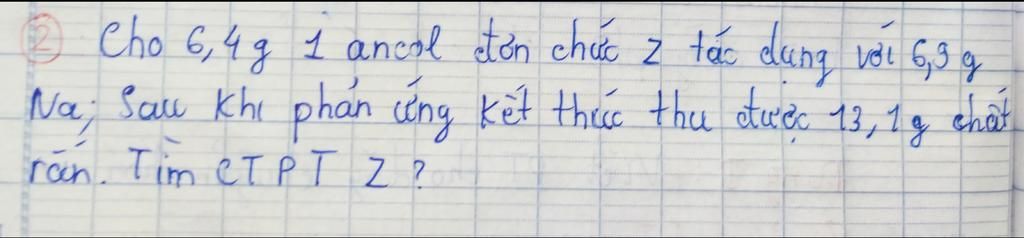 ② Cho 6,4g 1 ancol đơn chức Z tác dụng với 6,9g
Na; Sau khi phản ứng kết thúc thu được 13,1g chất
rắn. Tìm CTPT Z?